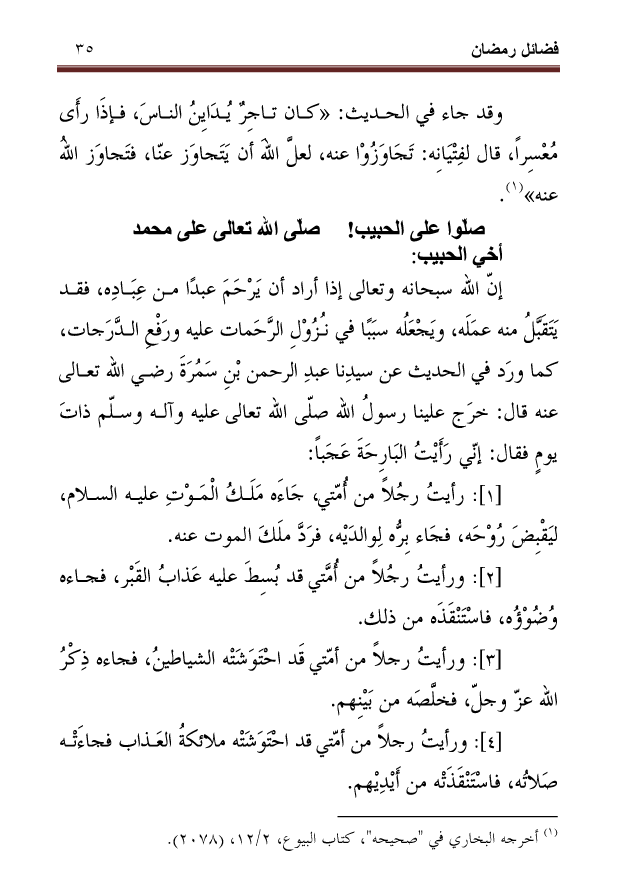 فضائل رمضان ٣٥
وقد جاء في الحديث: «كان تاجرٌ يُدَاينُ الناسَ، فإذَا رأَى
مُعْسِراً، قال لفِتْيَانِه: تَجَاوَزُوْا عنه، لعلَّ اللهَ أن يَتَجاوَز عنّا، فتَجاوَز اللهُ
عنه»(١).
صلّوا على الحبيب! صلّى الله تعالى على محمد
أخي الحبيب:
إنّ الله سبحانه وتعالى إذا أراد أن يَرْحَمَ عبدًا من عِبَادِه، فقد
يَتَقَبَّلُ منه عمَلَه، ويَجْعَلُه سبَبًا في نُزُوْلِ الرَّحَمات عليه ورَفْعِ الدَّرَجات،
كما ورَد في الحديث عن سيدِنا عبدِ الرحمن بْنِ سَمُرَةَ رضي الله تعالى
عنه قال: خرَج علينا رسولُ الله صلّى الله تعالى عليه وآله وسلّم ذاتَ
يومٍ فقال: إنّي رَأَيْتُ البَارِحَةَ عَجَباً:
[١]: رأيتُ رجُلاً من أُمّتي، جَاءَه مَلَكُ الْمَوْتِ عليه السلام،
ليَقْبِضَ رُوْحَه، فجَاء بِرُّه لِوالدَيْه، فرَدَّ ملَكَ الموت عنه.
[٢]: ورأيتُ رجُلاً من أُمَّتي قد بُسِطَ عليه عَذابُ القَبْر، فجاءه
وُضُوْؤُه، فاسْتَنْقَذَه من ذلك.
[٣]: ورأيتُ رجلاً من أمّتي قَد احْتَوَشَتْه الشياطينُ، فجاءه ذِكْرُ
الله عزّ وجلّ، فخلَّصَه من بَيْنِهم.
[٤]: ورأيتُ رجلاً من أمّتي قد احْتَوَشَتْه ملائكةُ العَذاب فجاءَتْه
صَلاتُه، فاسْتَنْقَذَتْه من أَيْدِيْهم.
(١) أخرجه البخاري في "صحيحه"، كتاب البيوع، ١٢/٢، (٢٠٧٨).